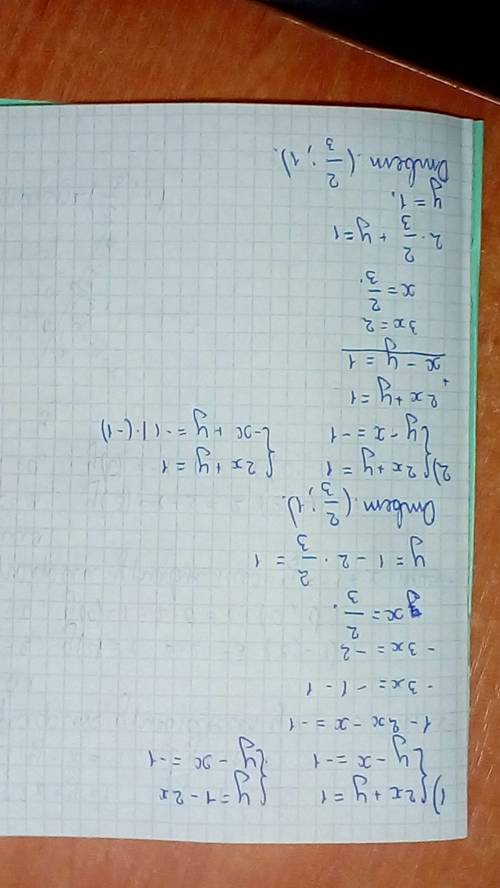 1) { 2x + y = 1   { y = 1 - 2x
y - x = -1   y - x = -1
1 - 2x - x = -1
-3x = -1 - 1
-3x = -2
x = 2/3.
y = 1 - 2 · 2/3 = 1
Ответ. (2/3; 1).
2) { 2x + y = 1   { 2x + y = 1
y - x = -1   -x + y = -1 | · (-1)
2x + y = 1
+ x - y = 1
3x = 2
x = 2/3.
2 · 2/3 + y = 1
y = 1.
Ответ. (2/3; 1).